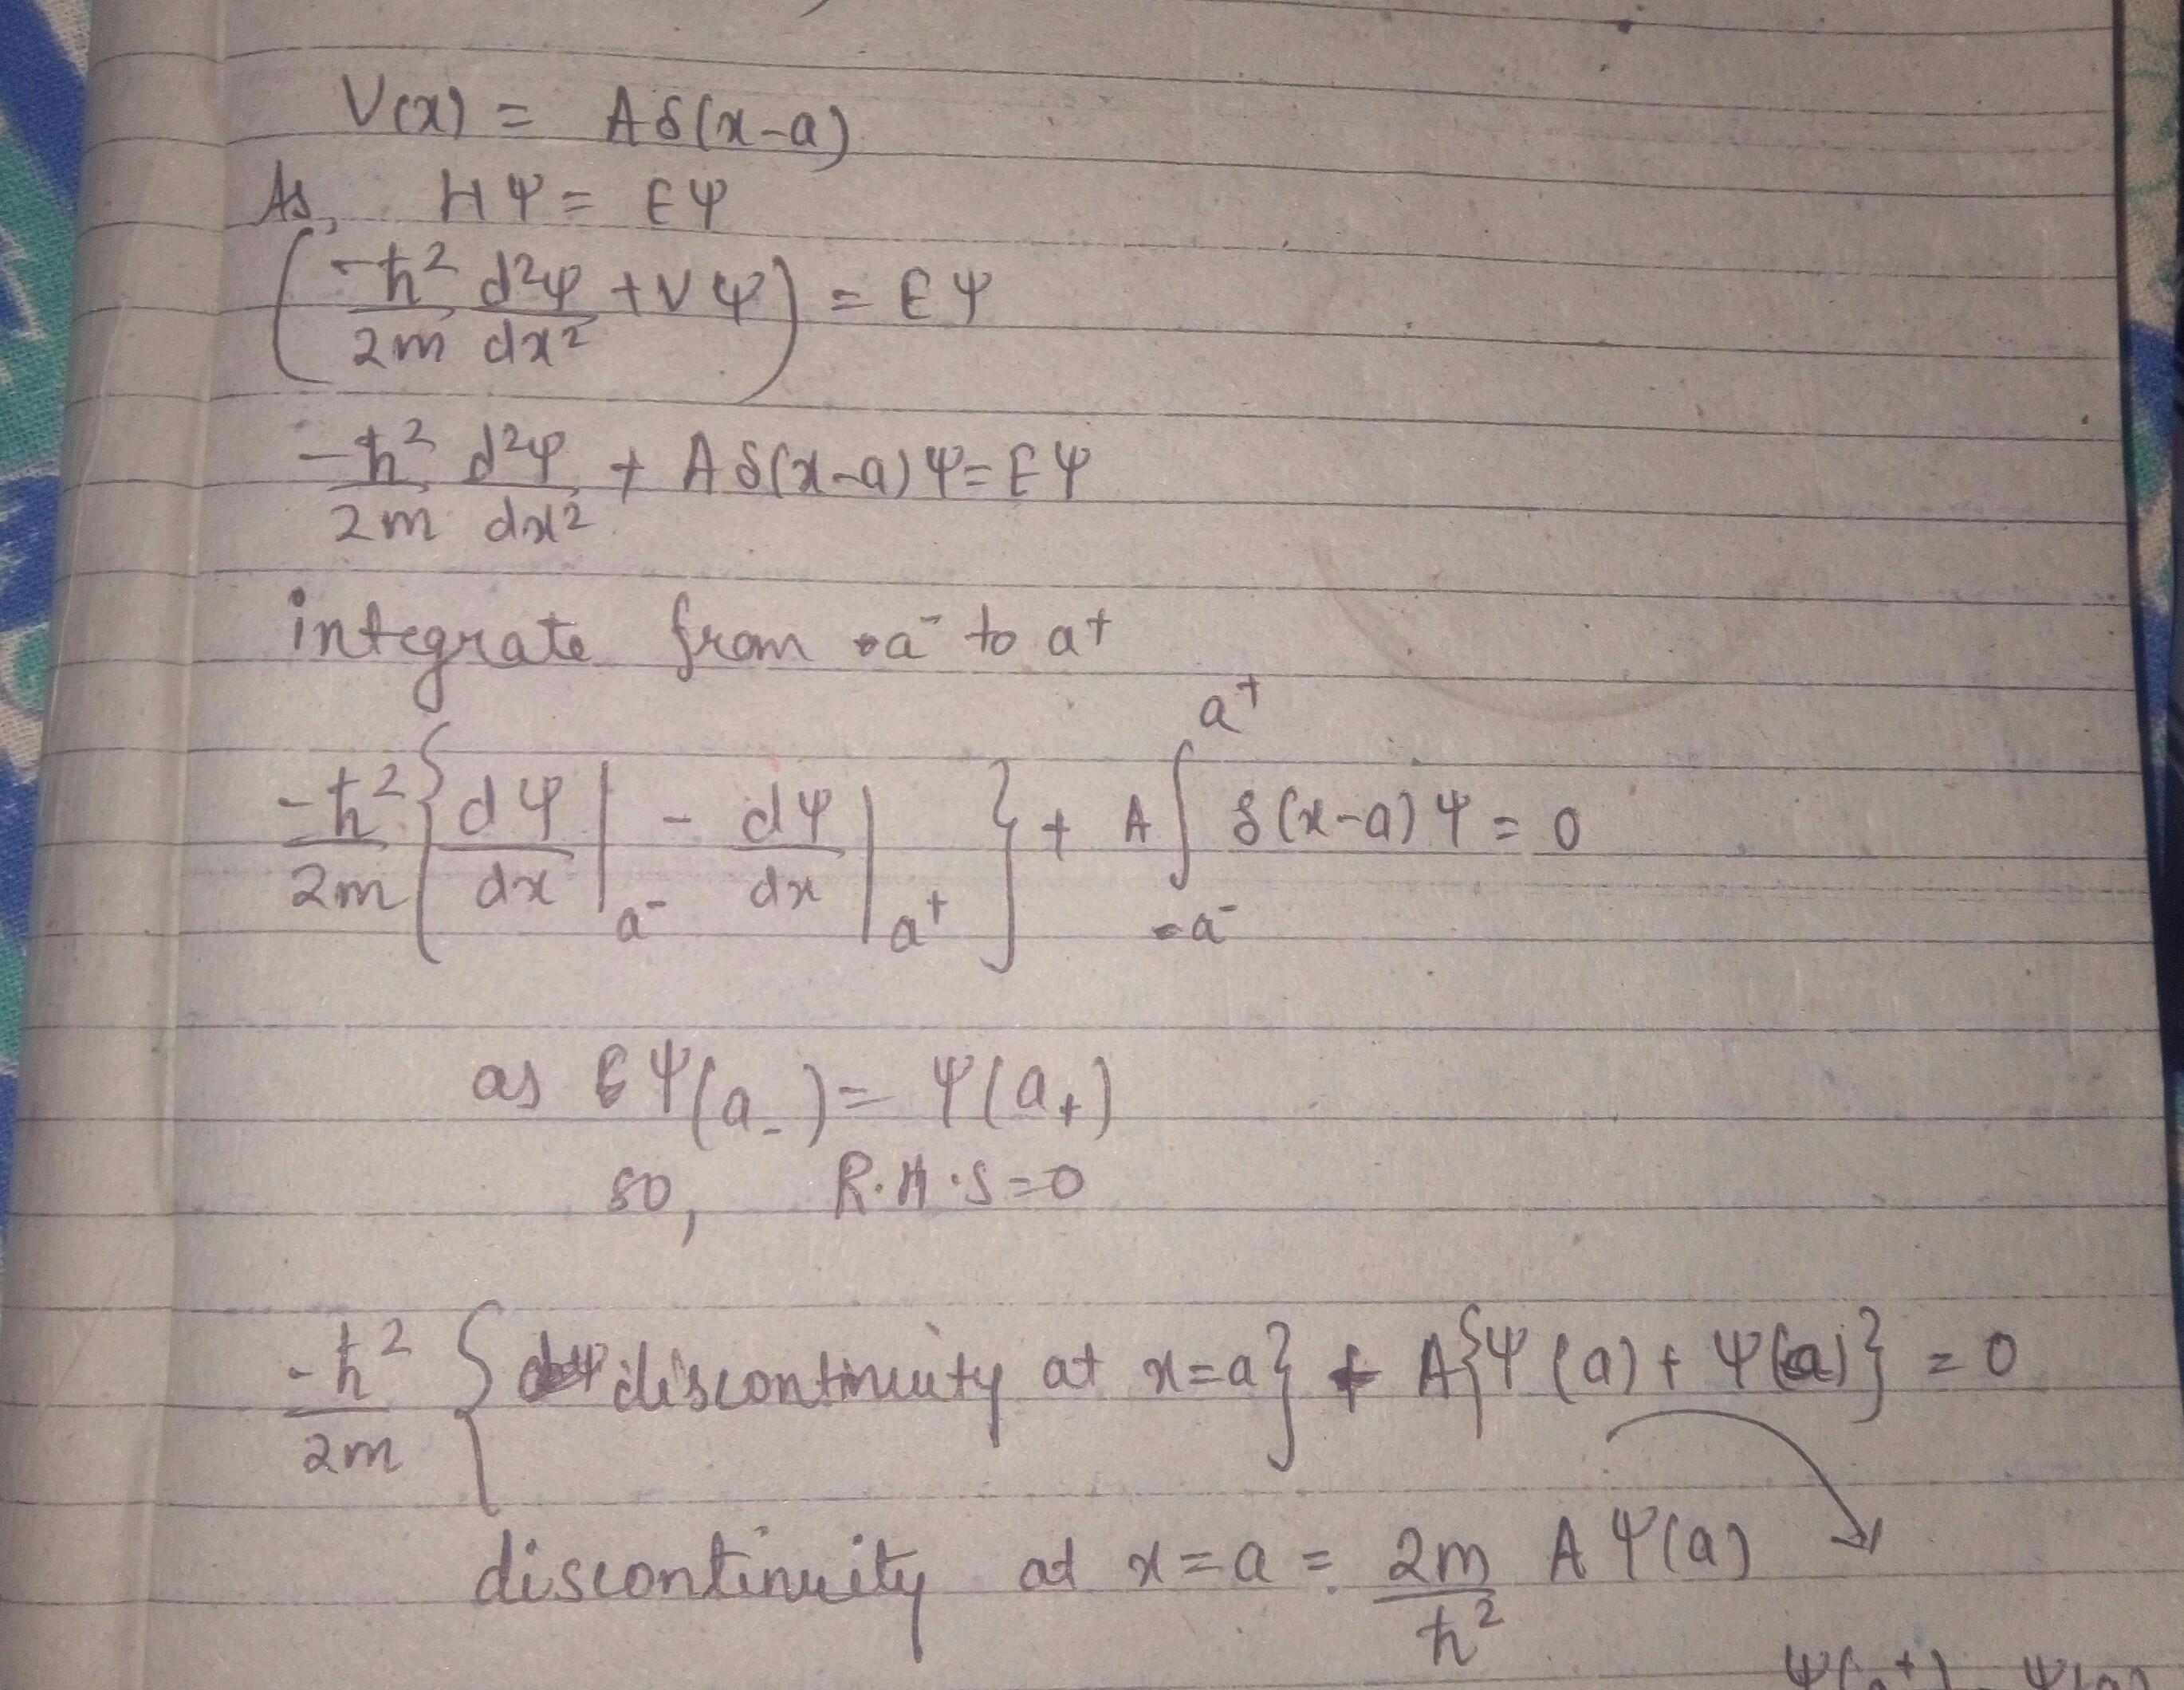 V(x) = Aδ(x-a)
As, HΨ = EΨ
(-ħ²/2m d²Ψ/dx² + VΨ) = EΨ
-ħ²/2m d²Ψ/dx² + Aδ(x-a)Ψ = EΨ
integrate from a⁻ to a⁺
-ħ²/2m {dΨ/dx|a⁻ - dΨ/dx|a⁺} + A∫a⁻^a⁺ δ(x-a)Ψ = 0
as Ψ(a₋) = Ψ(a₊)
so, R.H.S=0
-ħ²/2m {discontinuity at x=a} + A{Ψ(a) + Ψ(a)} = 0
discontinuity at x=a = 2m/ħ² AΨ(a)